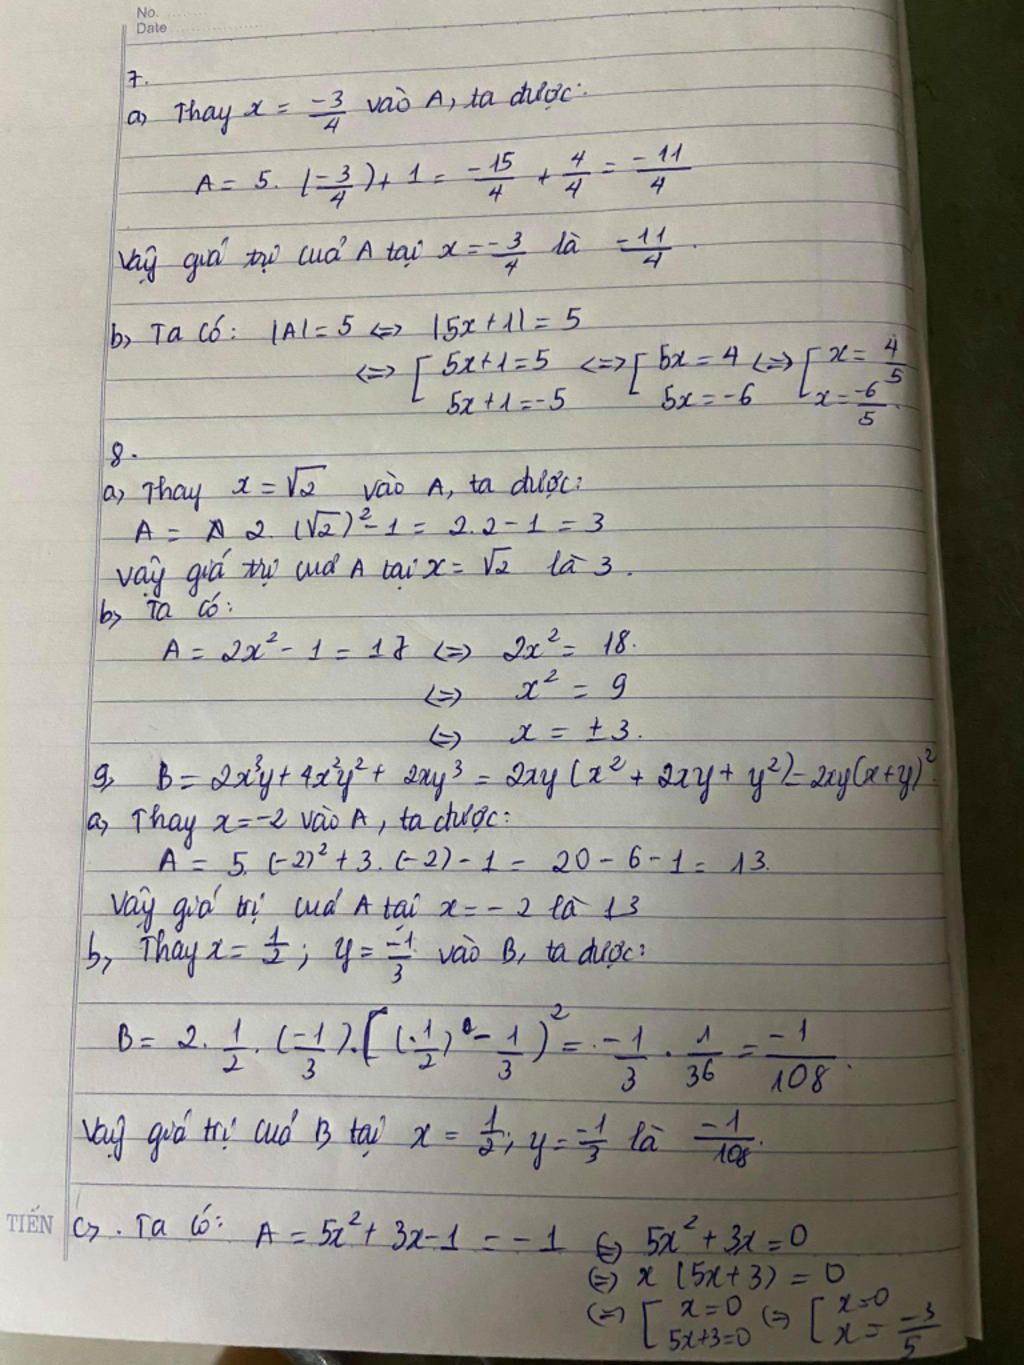 No.
Date
7.
a, Thay x = -3/4 vào A, ta được:
A = 5. (-3/4) + 1 = -15/4 + 4/4 = -11/4
Vậy giá trị cuả A tại x = -3/4 là -11/4.
b, Ta có: |A| = 5 <=> |5x + 1| = 5
<=> [ 5x + 1 = 5 <=> [ 5x = 4 <=> [ x = 4/5
5x + 1 = -5 5x = -6 x = -6/5.
8.
a, Thay x = √2 vào A, ta được:
A = 2. (√2)² - 1 = 2.2 - 1 = 3
Vậy giá trị cuả A tại x = √2 là 3.
b, Ta có:
A = 2x² - 1 = 17 <=> 2x² = 18.
<=> x² = 9
<=> x = ±3.
9, B = 2x³y + 4x²y² + 2xy³ = 2xy (x² + 2xy + y²) = 2xy(x+y)².
a, Thay x = -2 vào A, ta được:
A = 5. (-2)² + 3. (-2) - 1 = 20 - 6 - 1 = 13.
Vậy giá trị cuả A tại x = -2 là 13
b, Thay x = 1/2 ; y = -1/3 vào B, ta được:
B = 2. 1/2 . (-1/3). [(1/2) - 1/3)² = -1/3 . 1/36 = -1/108.
Vậy giá trị cuả B tại x = 1/2; y = -1/3 là -1/108.
TIẾN
c, . Ta có: A = 5x² + 3x - 1 = -1 <=> 5x² + 3x = 0
<=> x (5x + 3) = 0
<=> [ x = 0 <=> [ x = 0
5x + 3 = 0 x = -3/5